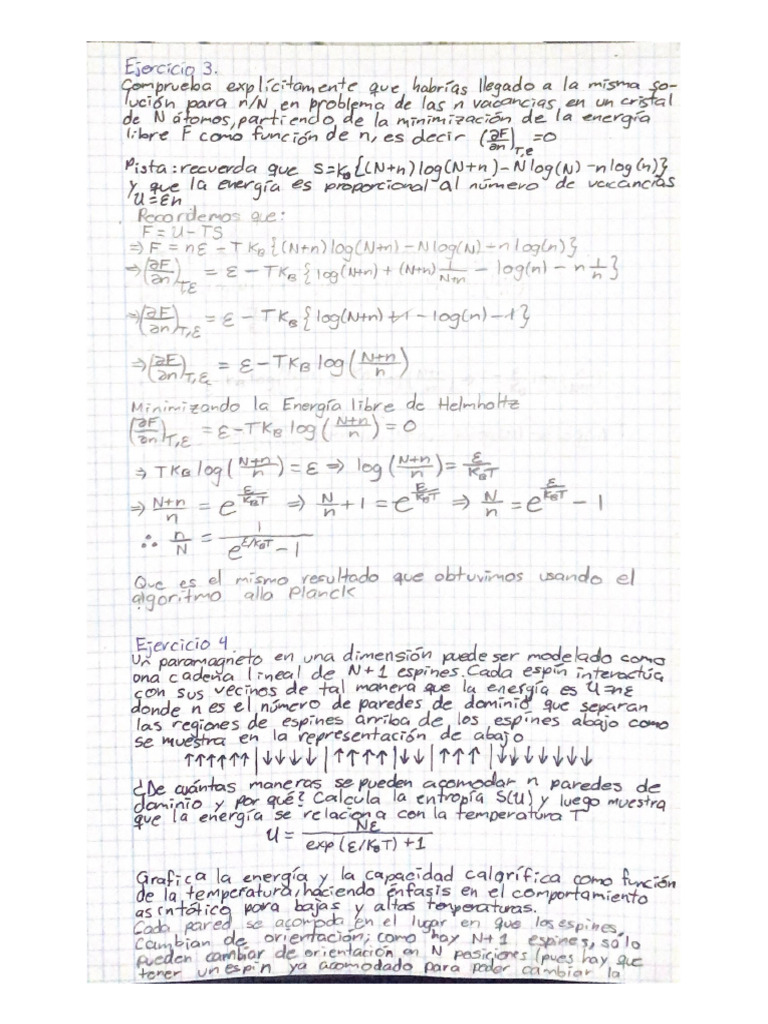 Ejercicio 3.
Comprueba explícitamente que habrías llegado a la misma so-
lución para n/N en problema de las n vacancias en un cristal
de N átomos, partiendo de la minimización de la energía
libre F como función de n, es decir (∂F/∂n)_T,e = 0
Pista: recuerda que S=k_B{(N+n)log(N+n)-Nlog(N)-nlog(n)}
y que la energía es proporcional al número de vacancias
U=εn
Recordemos que:
F=U-TS
⇒ F = nε - TK_B{(N+n)log(N+n)-Nlog(N)-nlog(n)}
⇒ (∂F/∂n)_T,ε = ε - TK_B{log(N+n) + (N+n) 1/(N+n) - log(n) - n 1/n}
⇒ (∂F/∂n)_T,ε = ε - TK_B{log(N+n) + 1 - log(n) - 1}
⇒ (∂F/∂n)_T,ε = ε - TK_B log((N+n)/n)
Minimizando la Energía libre de Helmholtz
(∂F/∂n)_T,ε = ε - TK_B log((N+n)/n) = 0
⇒ TK_B log((N+n)/n) = ε ⇒ log((N+n)/n) = ε/K_BT
⇒ (N+n)/n = e^(ε/K_BT) ⇒ N/n + 1 = e^(ε/K_BT) ⇒ N/n = e^(ε/K_BT) - 1
∴ n/N = 1/(e^(ε/K_BT) - 1)
Que es el mismo resultado que obtuvimos usando el
algoritmo alla Planck
Ejercicio 4.
Un paramagneto en una dimensión puede ser modelado como
una cadena lineal de N+1 espines. Cada espín interactúa
con sus vecinos de tal manera que la energía es U=nε
donde n es el número de paredes de dominio que separan
las regiones de espines arriba de los espines abajo como
se muestra en la representación de abajo
↑↑↑↑↑↑|↓↓↓↓|↑↑↑↑|↓↓|↑↑↑|↓↓↓↓↓↓↓
¿De cuántas maneras se pueden acomodar n paredes de
dominio y por qué? Calcula la entropía S(U) y luego muestra
que la energía se relaciona con la temperatura T
U = Nε/(exp(ε/K_BT)+1)
Grafica la energía y la capacidad calorífica como función
de la temperatura, haciendo énfasis en el comportamiento
asintótico para bajas y altas temperaturas.
Cada pared se acomoda en el lugar en que los espines,
cambian de orientación; como hay N+1 espines, solo
pueden cambiar de orientación en N posiciones (pues hay que
tener un espín ya acomodado para poder cambiar la